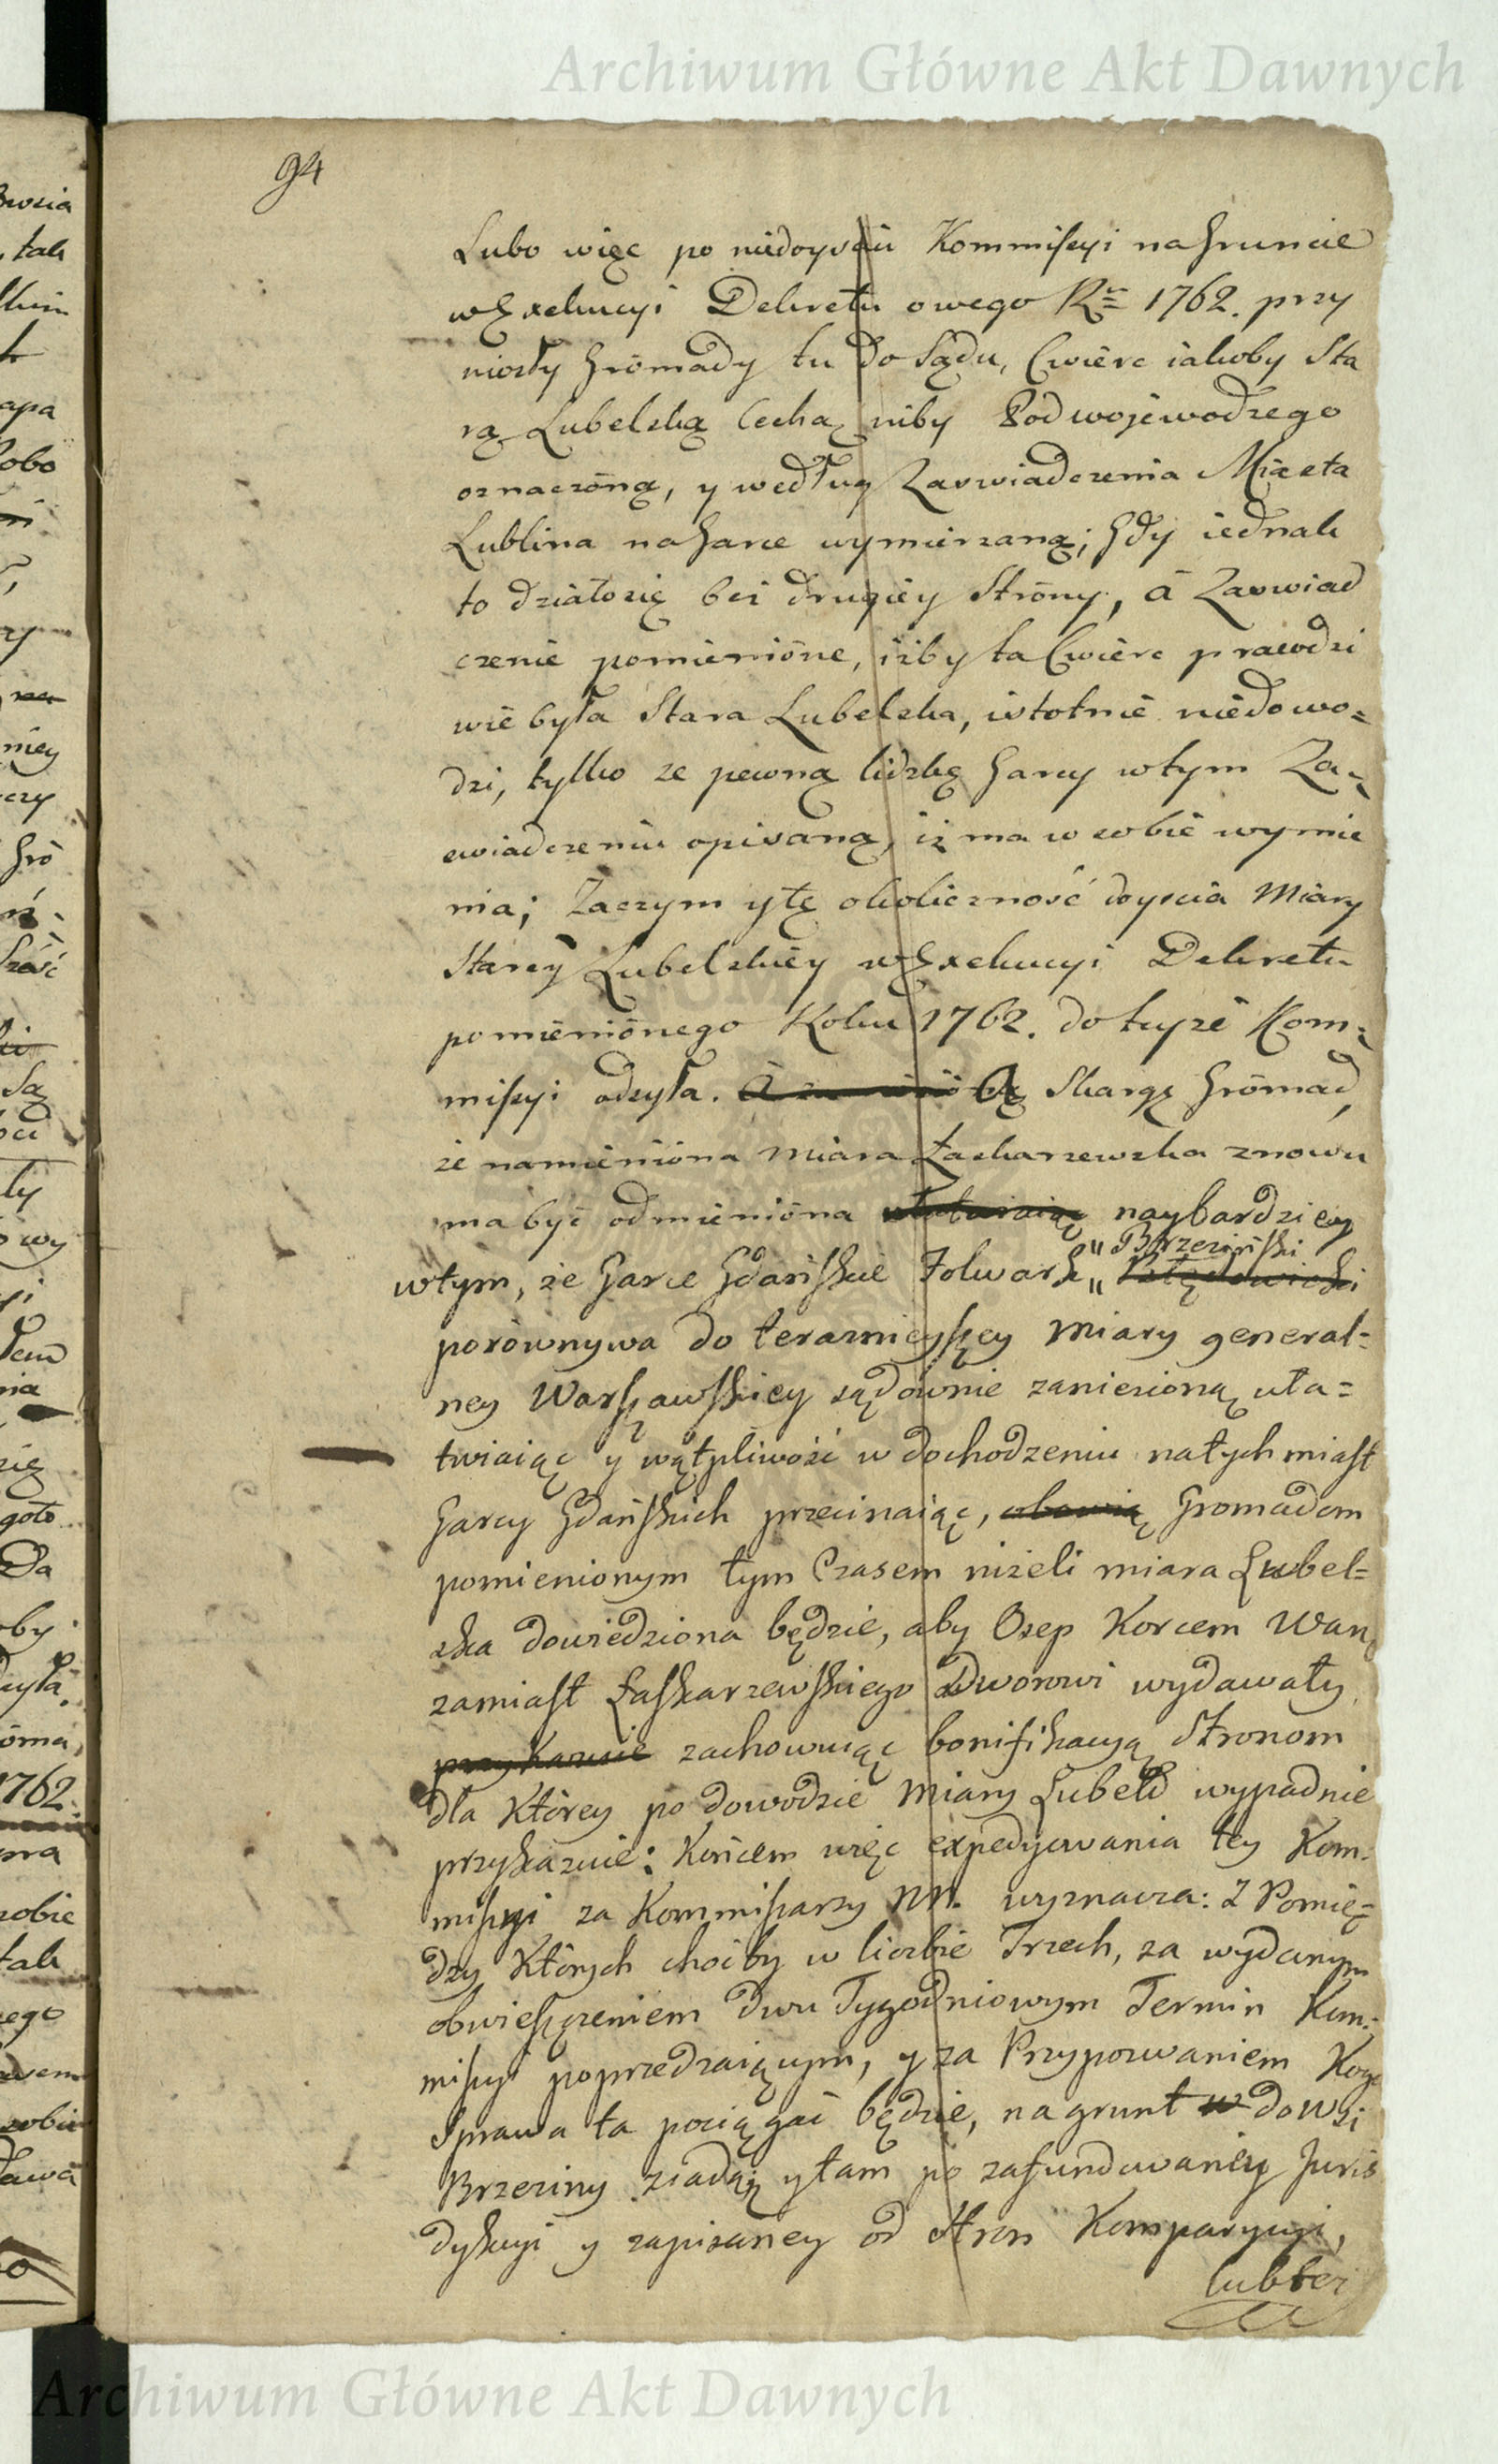 Archiwum Główne Akt Dawnych
94
Lubo więc po niedoyściu Kommissyi na Gruncie
w Exekucyi Dekretu owego Ru 1762. przy
niosły Gromady tu do Sądu, Cwierc iakoby Sta
rą Lubelską Cechą niby Podwojewodzego
oznaczóną, y według Zaswiadczenia Miasta
Lublina na Garce wymierzaną; Gdy iednak
to działo się bez drugiéy Stróny, à Zaswiad
czenie pomienióne, iżby ta Cwierc prawdzi
wie była Stara Lubelska, istotnie niedowo=
dzi, tylko ze pewną liczbę Garcy wtym Za=
swiadczeniu opisaną, iż ma w sobie wymie
nia; Zaczym y tę okoliczność doyscia Miary
Starey Lubelskiéy w Exekucyi Dekretu
pomieniónego Roku 1762. do tuyże Kom=
missyi odsyła. A Skargę Grómad,
że namienióna Miara Łaskarzewska znowu
ma być odmienióna naybardziey
wtym, że Garce Gdańskie Folwark „Brzeziński
porównywa do teraznieyszey Miary general=
ney Warszawskiey sądownie zaniesioną uła=
twiaiąc y wątpliwość w dochodzeniu natychmiast
Garcy Gdańskich przecinaiąc, Gromadom
pomienionym tym Czasem niżeli miara Lubel=
ska dowiedziona będzie, aby Osep Korcem War
zamiast Łaskarzewskiego Dworowi wydawały
przykazuie zachowuiąc bonifikacyą Stronom
dla Którey po dowodzie Miary Lubels wypadnie
przykazuie: Końcem więc expedyowania tey Kom=
missyi za Kommissarzy NN. wyznacza: Z Pomię=
dzy Których choćby w liczbie Trzech, za wydanym
obwieszczeniem dwu Tygodniowym Termin Kom=
missyi poprzedzaiącym, y za Przypozwaniem Kogo
Sprawa ta pociągać będzie, na grunt w do Wsi
Brzeziny ziadą y tam po zafundowaniéy Juris
dykcyi y zapisaney od Stron Komparycyi,
lub tez
Archiwum Główne Akt Dawnych